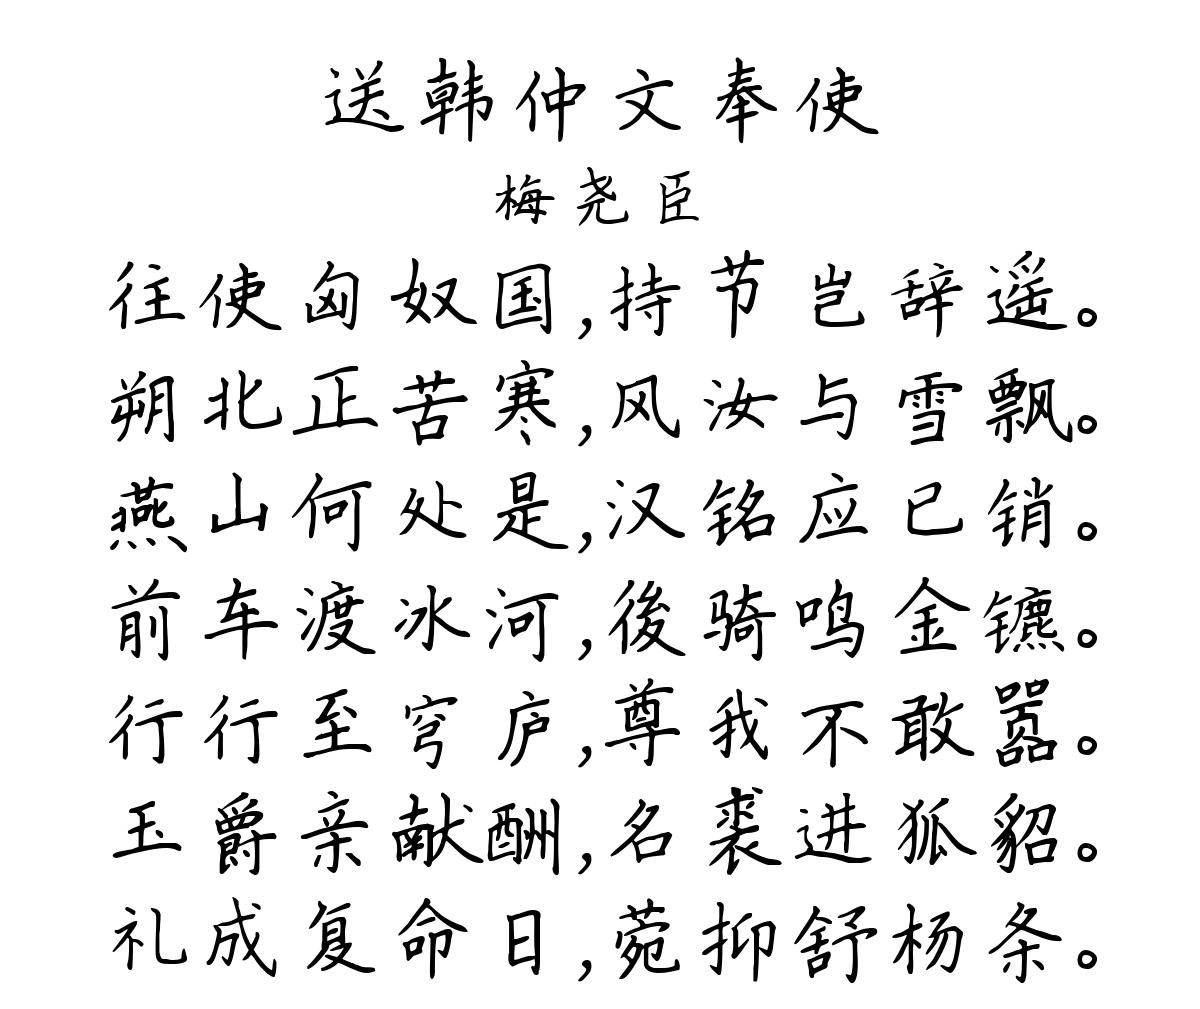 送韩仲文奉使
梅尧臣
往使匈奴国,持节岂辞遥。
朔北正苦寒,风汝与雪飘。
燕山何处是,汉铭应已销。
前车渡冰河,後骑鸣金镳。
行行至穹庐,尊我不敢嚣。
玉爵亲献酬,名裘进狐貂。
礼成复命日,菀抑舒杨条。